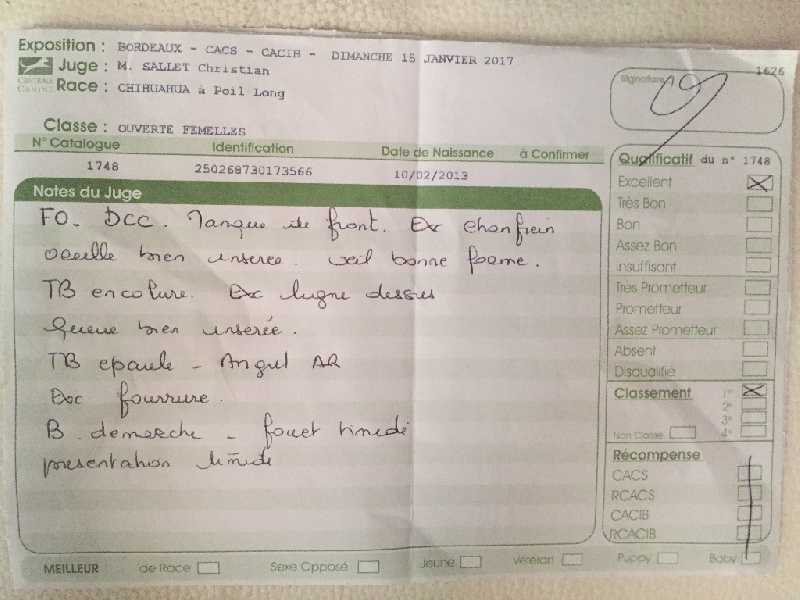 Exposition : BORDEAUX - CACS - CACIB - DIMANCHE 15 JANVIER 2017
Juge : M. SALLET Christian
CENTRALE CANINE
Race : CHIHUAHUA à Poil Long
1626
Signature
Classe : OUVERTE FEMELLES
N° Catalogue Identification Date de Naissance à Confirmer
1748 250268730173566 10/02/2013
Qualificatif du n° 1748
Excellent
Très Bon
Bon
Assez Bon
Insuffisant
Très Prometteur
Prometteur
Assez Prometteur
Absent
Disqualifié
Classement 1er
2e
3e
Non Classé 4e
Récompense
CACS
RCACS
CACIB
RCACIB
Notes du Juge
FO. DCC. Manque de front. Exc chanfrein
oreille bien inserée. oeil bonne forme.
TB encolure. Exc ligne dessus
Queue bien insérée.
TB epaule - Angul AR
Exc fourrure.
B. demarche - fouet timide
presentation timide
MEILLEUR : de Race Sexe Opposé Jeune Vétéran Puppy Baby